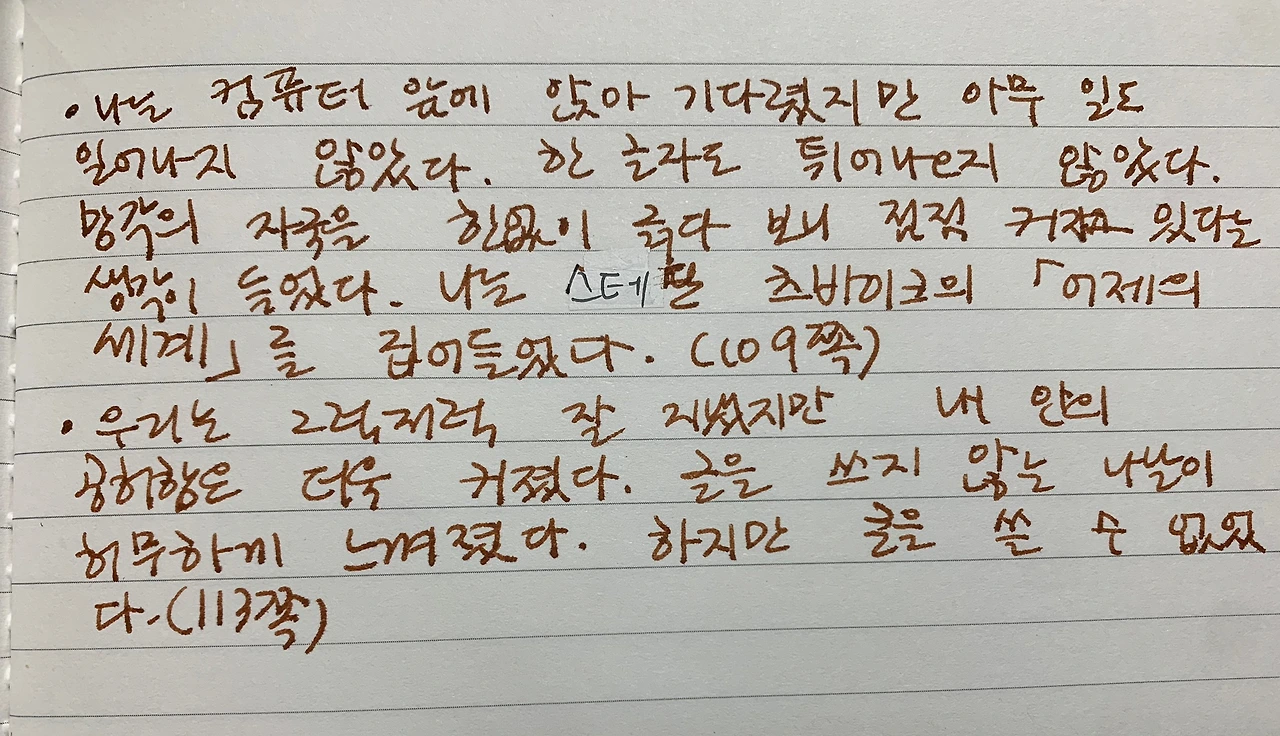 · 나는 컴퓨터 앞에 앉아 기다렸지만 아무 일도
일어나지 않았다. 한 글자도 튀어나오지 않았다.
망각의 자국을 한없이 긁다 보니 점점 커져만 있다는
생각이 들었다. 나는 스테판 츠바이크의 「어제의
세계」를 집어들었다. (109쪽)
· 우리는 그럭저럭 잘 지냈지만 내 안의
공허함은 더욱 커졌다. 글을 쓰지 않는 나날이
허무하게 느껴졌다. 하지만 글을 쓸 수 없었
다. (113쪽)